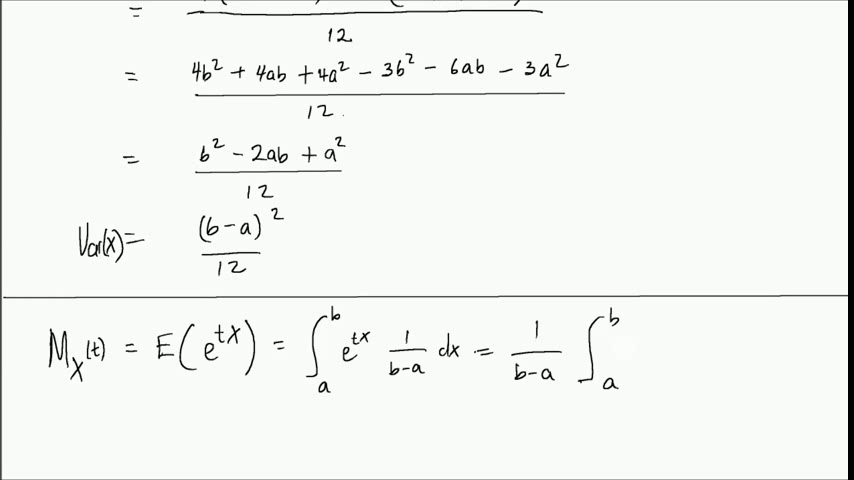 = 12
= 4b² + 4ab + 4a² − 3b² − 6ab − 3a² / 12
= b² − 2ab + a² / 12
Var(X) = (b−a)² / 12
M_X(t) = E(e^{tX}) = ∫_a^b e^{tx} 1/(b−a) dx = 1/(b−a) ∫_a^b